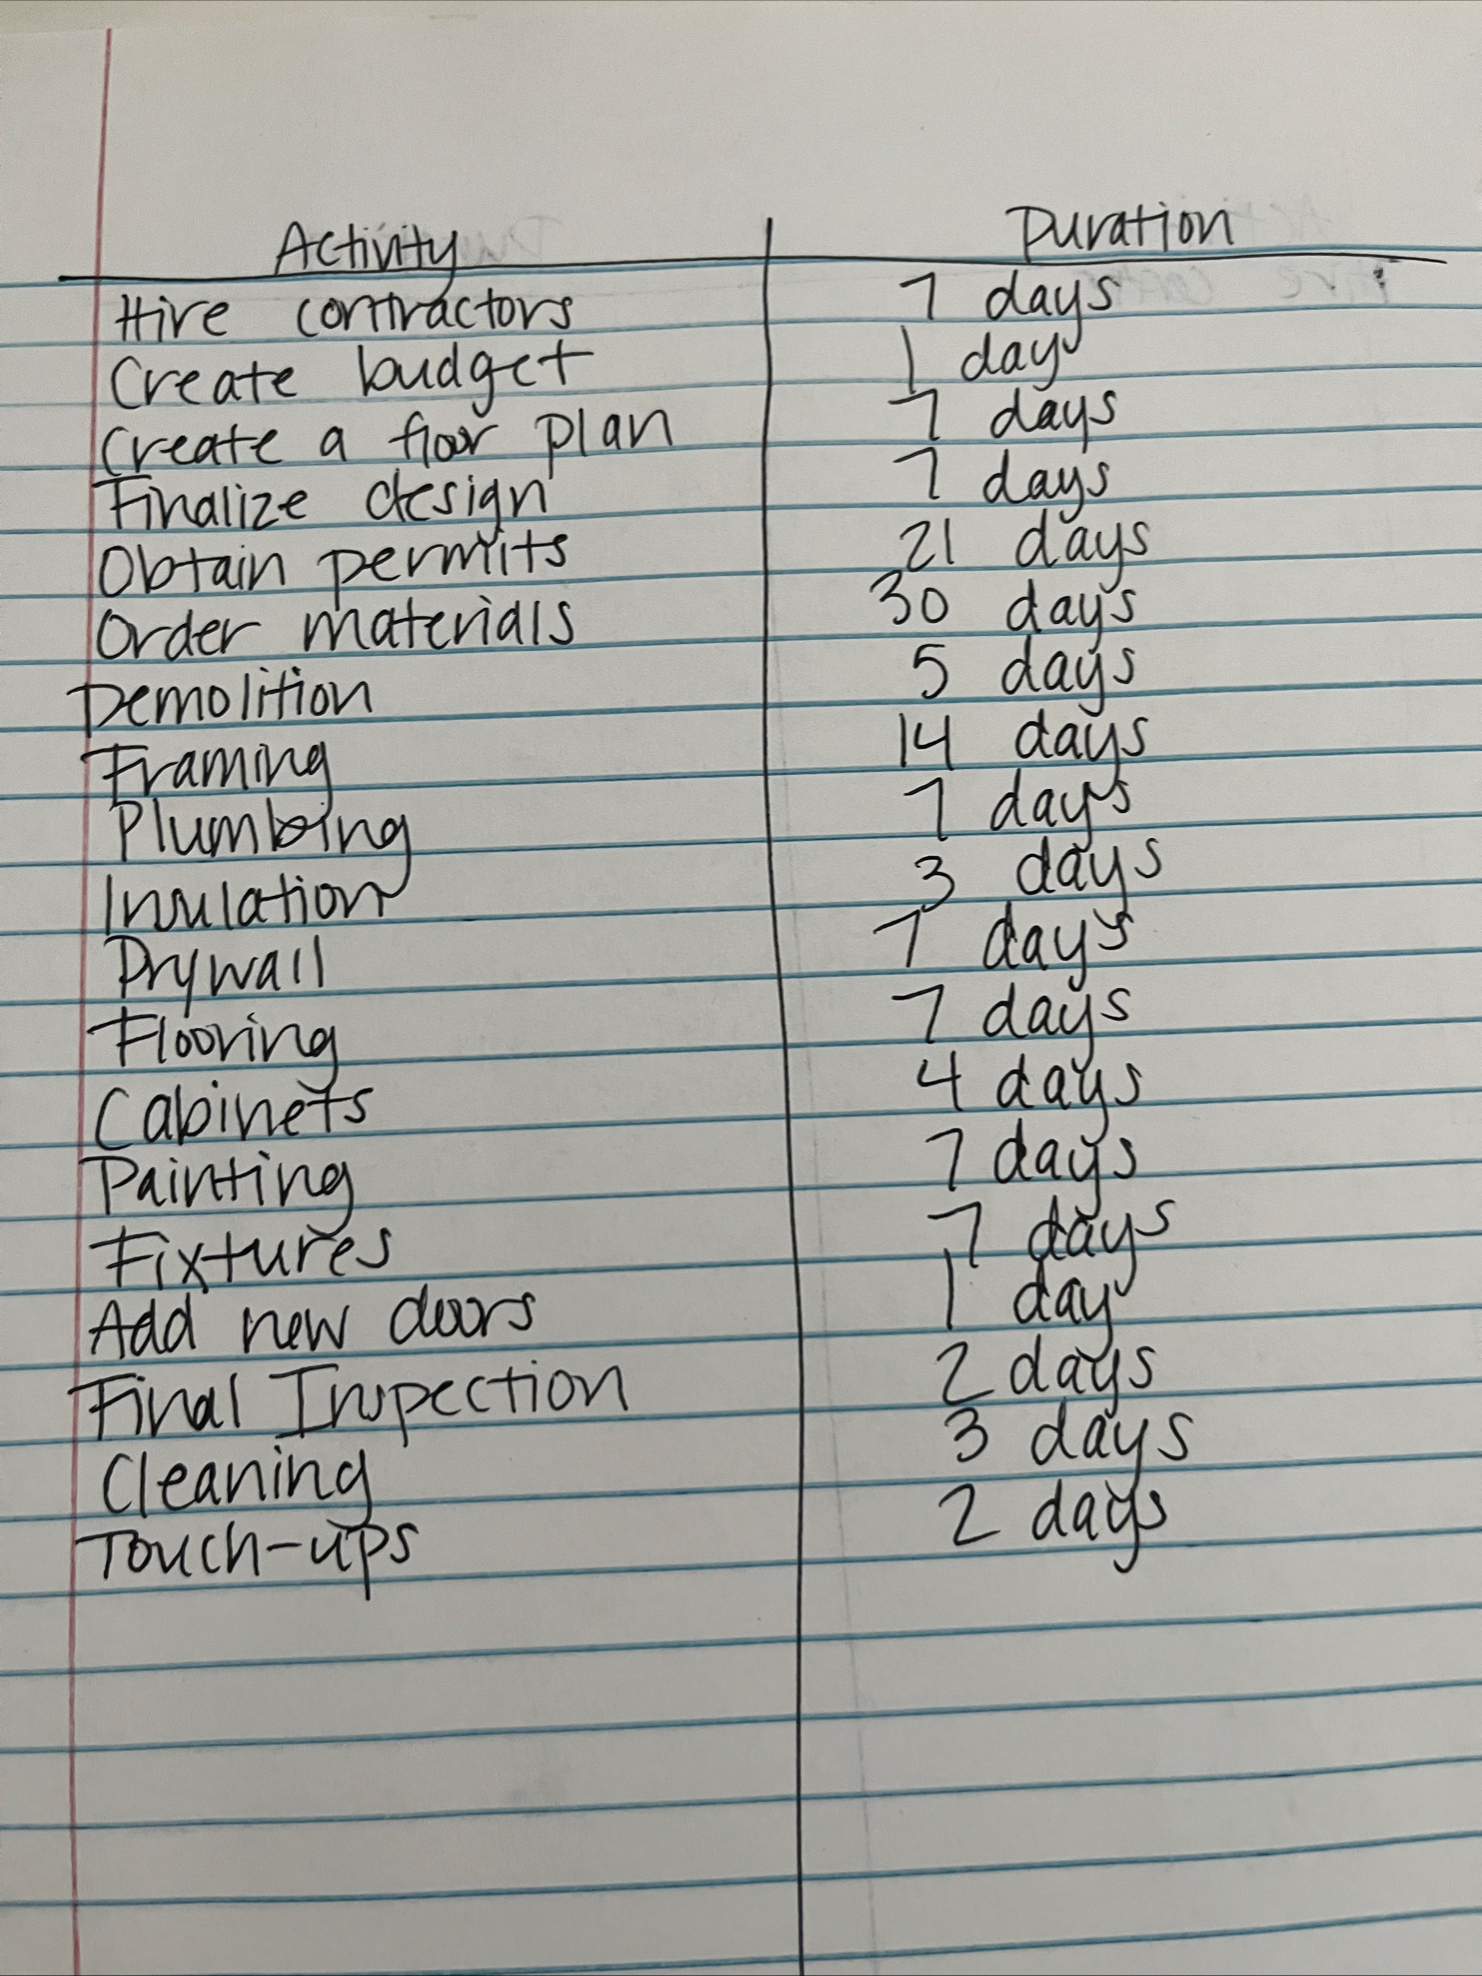 Activity Duration
Hire contractors 7 days
Create budget 1 day
Create a floor plan 7 days
Finalize design 7 days
Obtain permits 21 days
Order materials 30 days
Demolition 5 days
Framing 14 days
Plumbing 7 days
Insulation 3 days
Drywall 7 days
Flooring 7 days
Cabinets 4 days
Painting 7 days
Fixtures 7 days
Add new doors 1 day
Final Inspection 2 days
Cleaning 3 days
Touch-ups 2 days